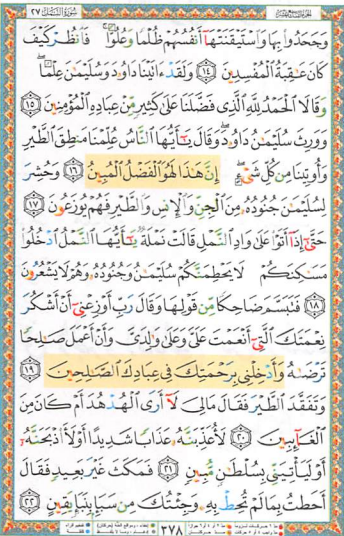 سورة النمل ٢٧
وَجَحَدُوا۟ بِهَا وَٱسْتَيْقَنَتْهَآ أَنفُسُهُمْ ظُلْمًا وَعُلُوًّا ۚ فَٱنظُرْ كَيْفَ
كَانَ عَٰقِبَةُ ٱلْمُفْسِدِينَ ١٤ وَلَقَدْ ءَاتَيْنَا دَاوُۥدَ وَسُلَيْمَٰنَ عِلْمًا ۖ
وَقَالَا ٱلْحَمْدُ لِلَّهِ ٱلَّذِى فَضَّلَنَا عَلَىٰ كَثِيرٍ مِّنْ عِبَادِهِ ٱلْمُؤْمِنِينَ ١٥
وَوَرِثَ سُلَيْمَٰنُ دَاوُۥدَ ۖ وَقَالَ يَٰٓأَيُّهَا ٱلنَّاسُ عُلِّمْنَا مَنطِقَ ٱلطَّيْرِ
وَأُوتِينَا مِن كُلِّ شَىْءٍ ۖ إِنَّ هَٰذَا لَهُوَ ٱلْفَضْلُ ٱلْمُبِينُ ١٦ وَحُشِرَ
لِسُلَيْمَٰنَ جُنُودُهُۥ مِنَ ٱلْجِنِّ وَٱلْإِنسِ وَٱلطَّيْرِ فَهُمْ يُوزَعُونَ ١٧
حَتَّىٰٓ إِذَآ أَتَوْا۟ عَلَىٰ وَادِ ٱلنَّمْلِ قَالَتْ نَمْلَةٌ يَٰٓأَيُّهَا ٱلنَّمْلُ ٱدْخُلُوا۟
مَسَٰكِنَكُمْ لَا يَحْطِمَنَّكُمْ سُلَيْمَٰنُ وَجُنُودُهُۥ وَهُمْ لَا يَشْعُرُونَ
١٨ فَتَبَسَّمَ ضَاحِكًا مِّن قَوْلِهَا وَقَالَ رَبِّ أَوْزِعْنِىٓ أَنْ أَشْكُرَ
نِعْمَتَكَ ٱلَّتِىٓ أَنْعَمْتَ عَلَىَّ وَعَلَىٰ وَٰلِدَىَّ وَأَنْ أَعْمَلَ صَٰلِحًا
تَرْضَىٰهُ وَأَدْخِلْنِى بِرَحْمَتِكَ فِى عِبَادِكَ ٱلصَّٰلِحِينَ ١٩
وَتَفَقَّدَ ٱلطَّيْرَ فَقَالَ مَا لِىَ لَآ أَرَى ٱلْهُدْهُدَ أَمْ كَانَ مِنَ
ٱلْغَآئِبِينَ ٢٠ لَأُعَذِّبَنَّهُۥ عَذَابًا شَدِيدًا أَوْ لَأَا۟ذْبَحَنَّهُۥٓ
أَوْ لَيَأْتِيَنِّى بِسُلْطَٰنٍ مُّبِينٍ ٢١ فَمَكَثَ غَيْرَ بَعِيدٍ فَقَالَ
أَحَطتُ بِمَا لَمْ تُحِطْ بِهِۦ وَجِئْتُكَ مِن سَبَإٍۭ بِنَبَإٍ يَقِينٍ ٢٢
٣٧٨